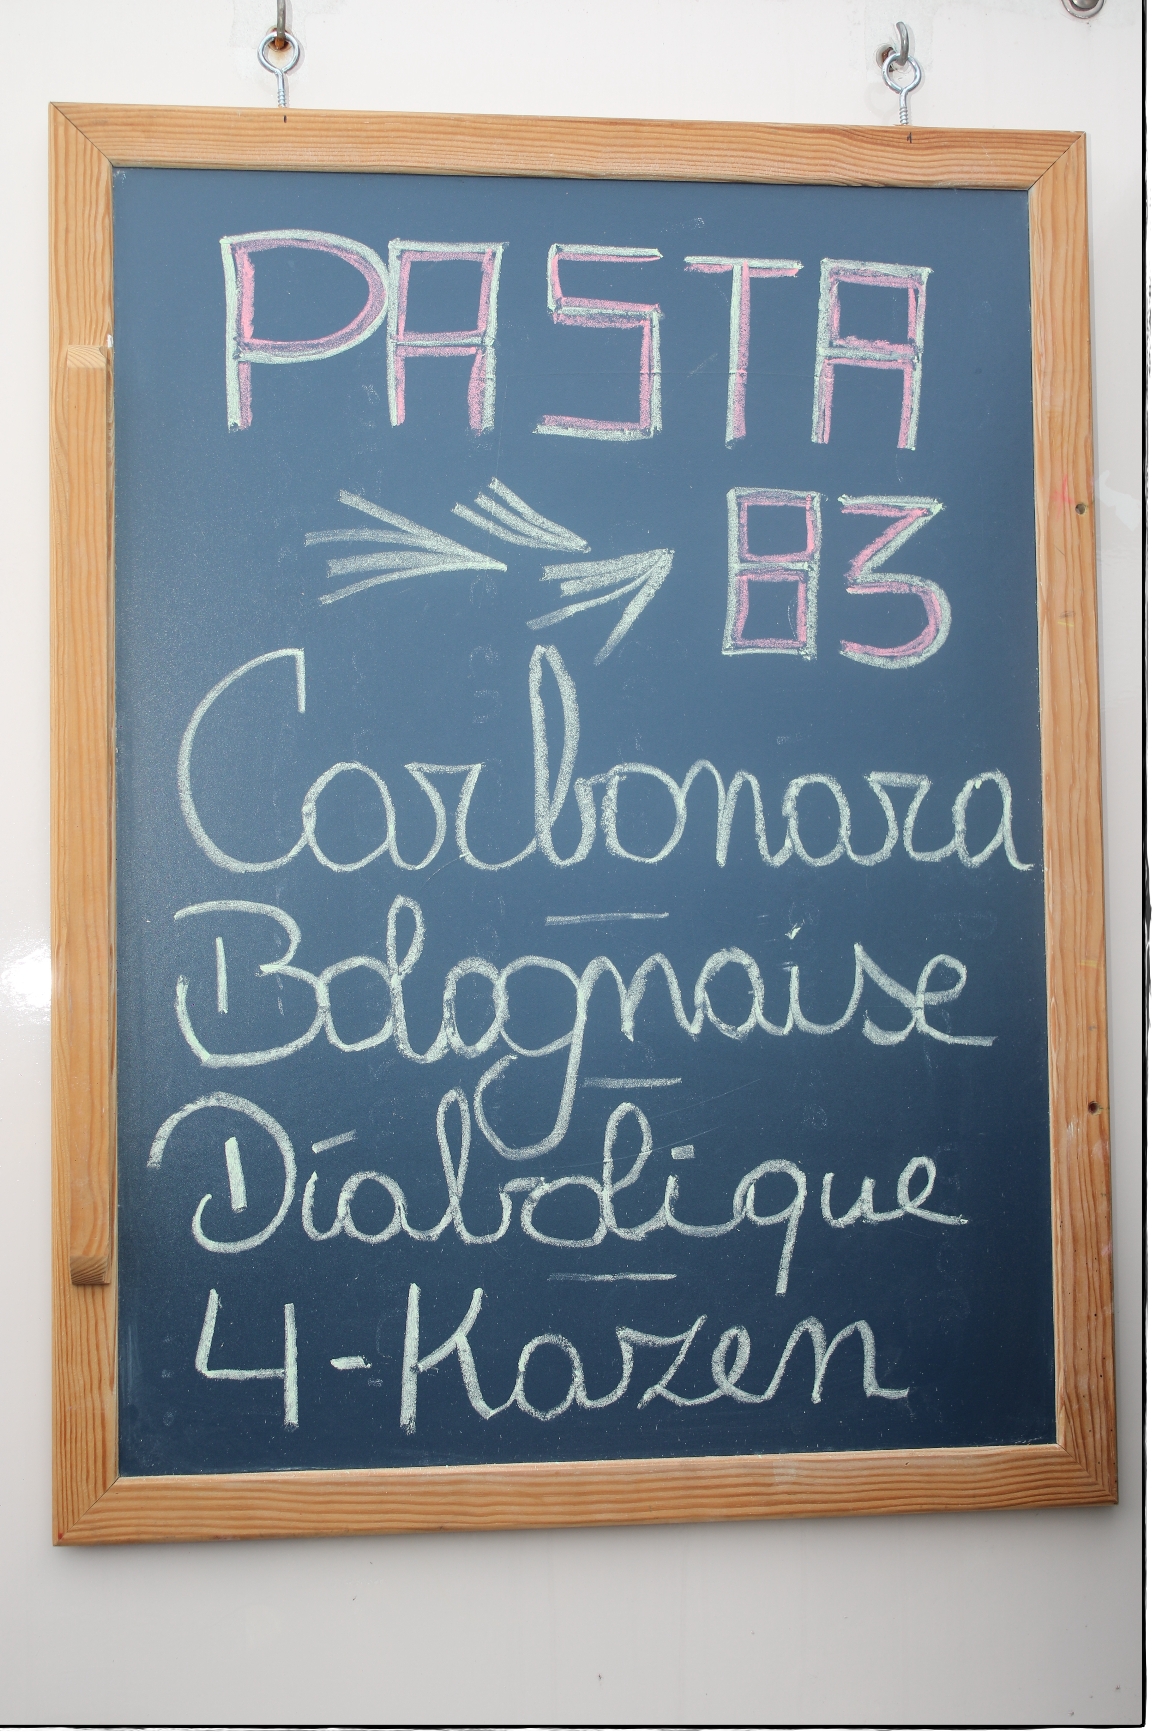 PASTA
83
Carbonara
Bolognaise
Diabolique
4-Kazen